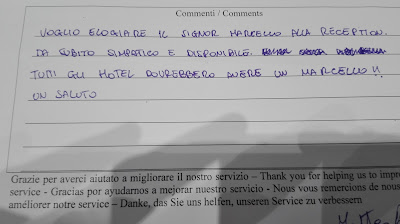 Commenti / Comments
VOGLIO ELOGIARE IL SIGNOR MARCELLO ALLA RECEPTION.
DA SUBITO SIMPATICO E DISPONIBILE.
TUTTI GLI HOTEL DOVREBBERO AVERE UN MARCELLO!!
UN SALUTO
Grazie per averci aiutato a migliorare il nostro servizio – Thank you for helping us to impro
service - Gracias por ayudarnos a mejorar nuestro servicio - Nous vous remercions de nous
améliorer notre service – Danke, das Sie uns helfen, unseren Service zu verbessern